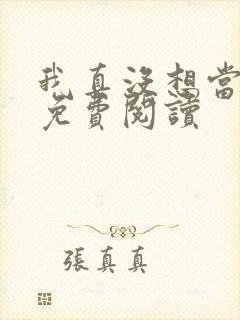 我真没想当
免費閱讀
張真真